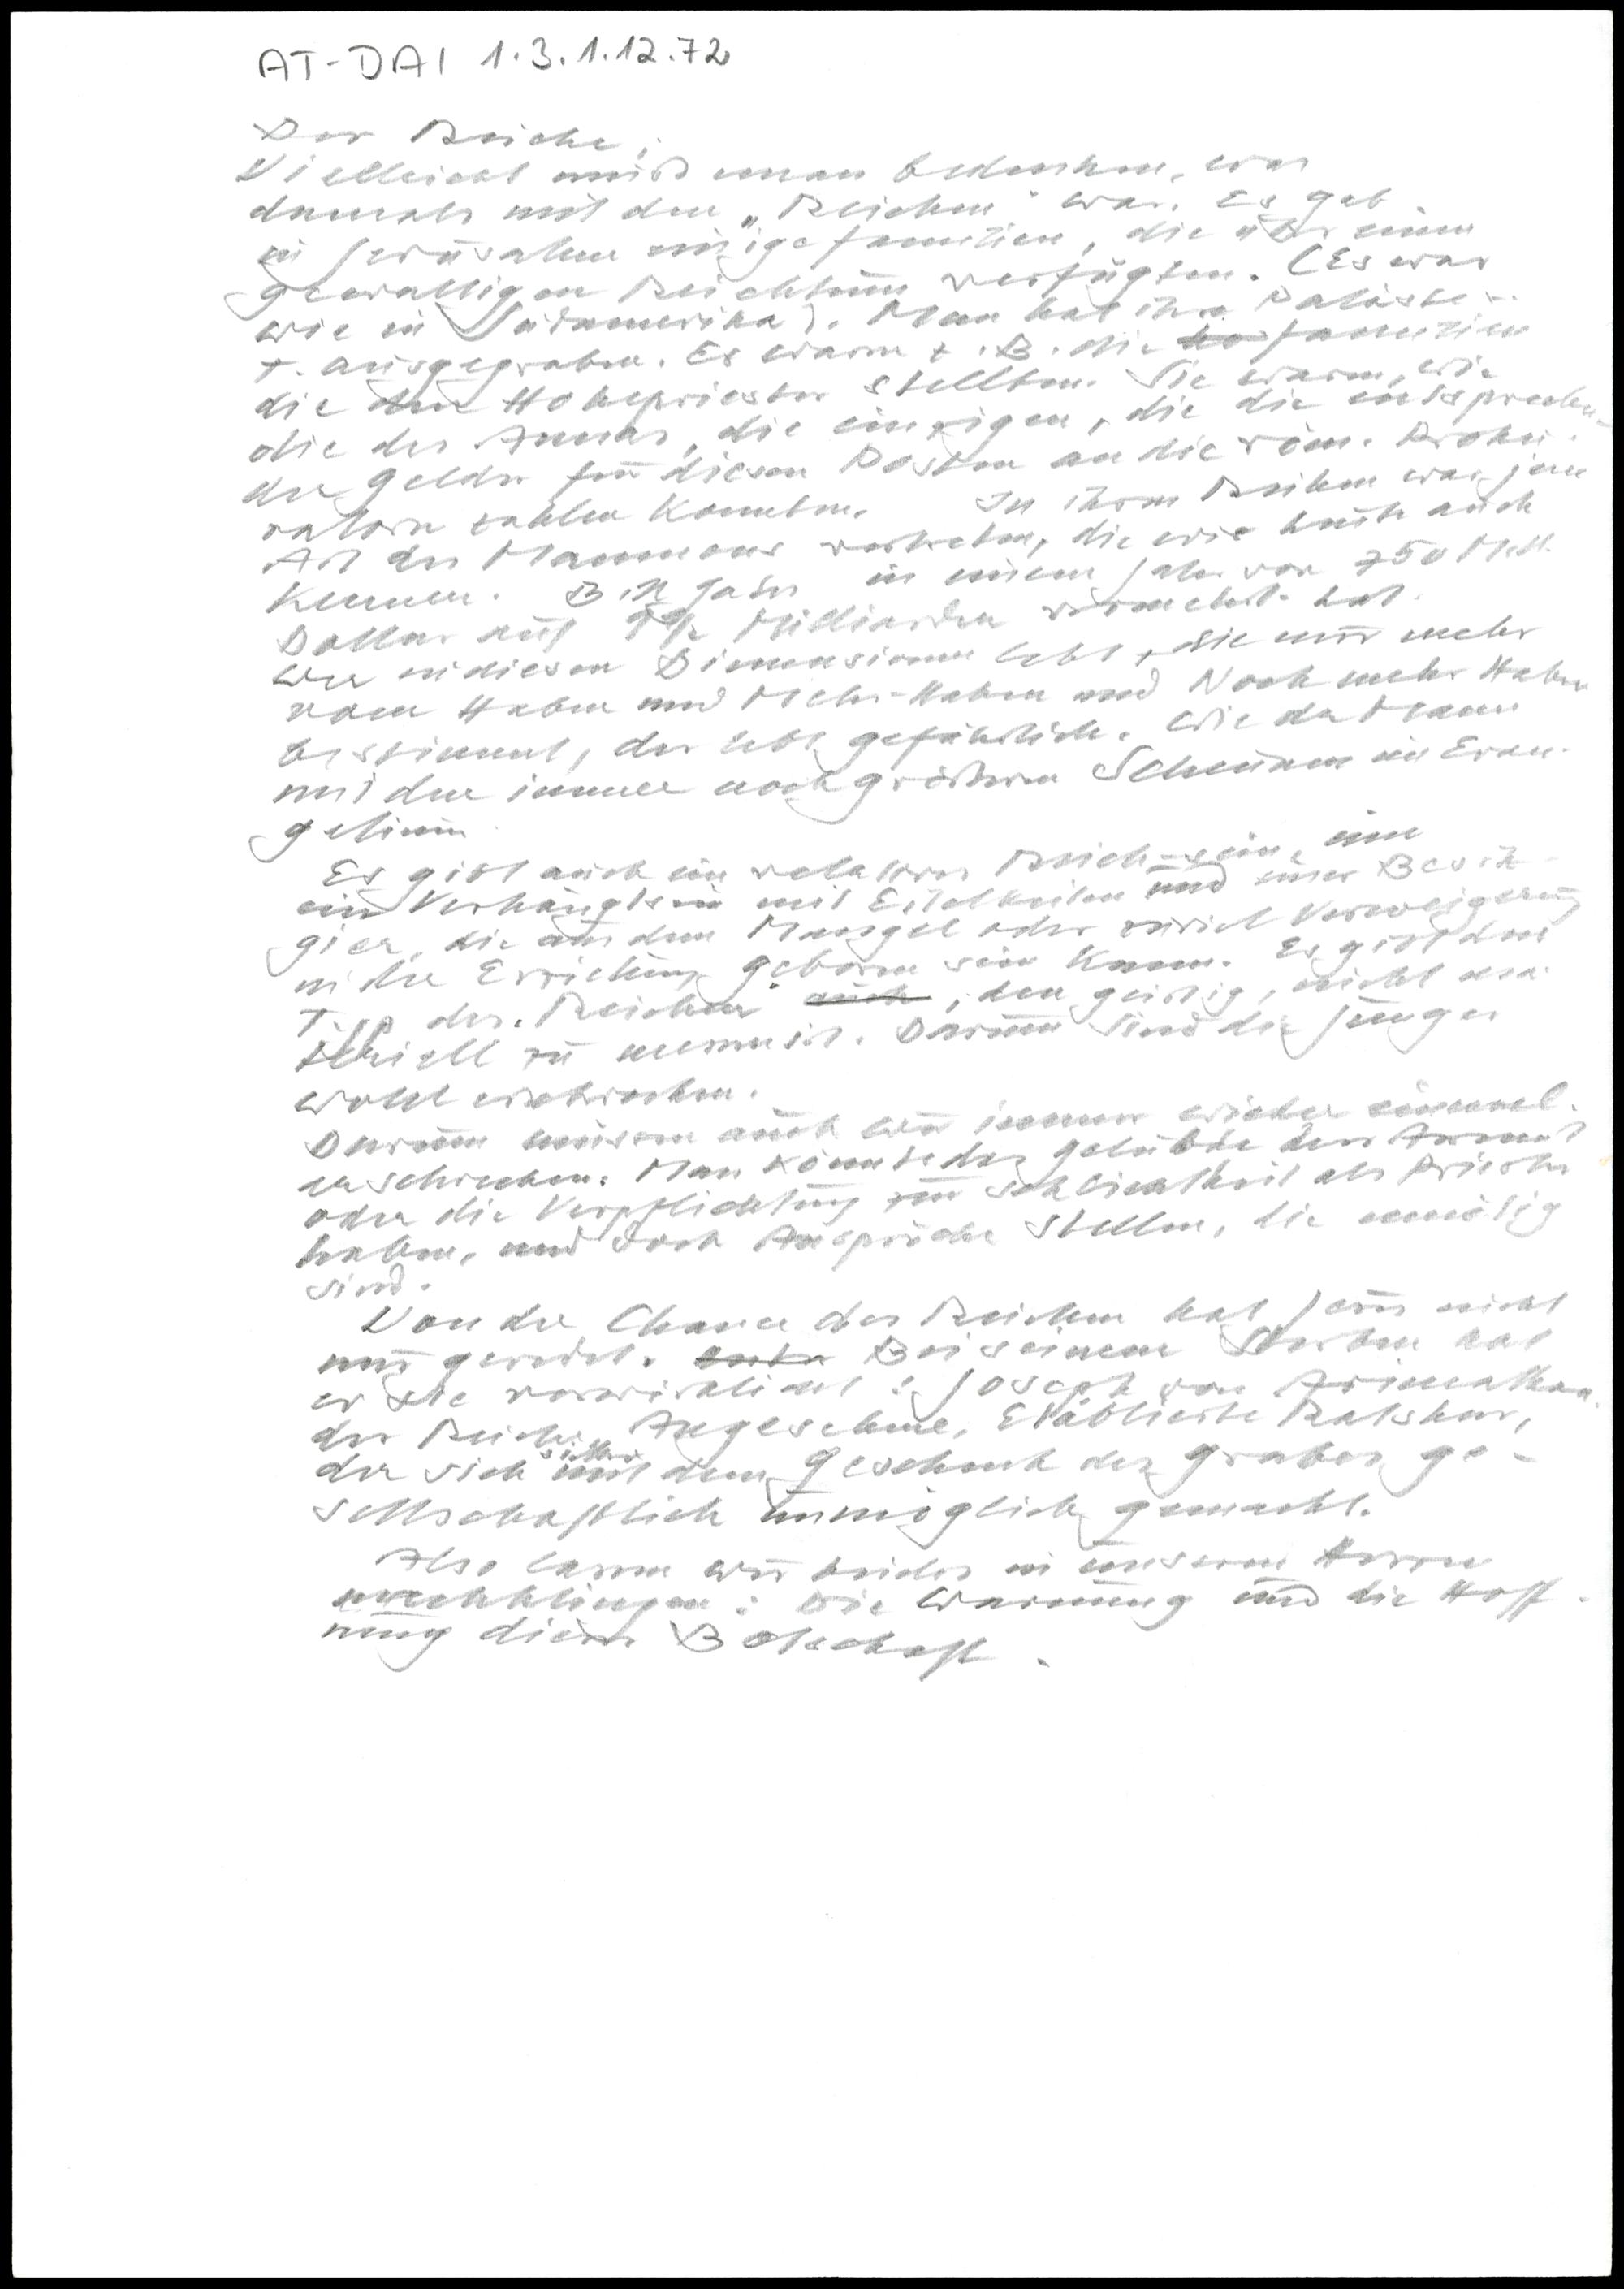 AT-DAI 1.3.1.12.72
Der Reiche,
Vielleicht muß man bedenken, was
damals mit den „Reichen" war. Es gab
in Jerusalem einige Familien, die über einen
gewaltigen Reichtum verfügten. (Es war
wie in Südamerika). Man hat ihre Paläste z.
T. ausgegraben. Es waren z. B. die Familien
die den Hohepriester stellten. Sie waren, wie
die des Annas, die einzigen, die die entsprechen-
den Gelder für diesen Posten an die röm. Proku-
ratoren zahlen konnten. In ihren Reihen war jene
Art des Mammons vertreten, die wir heute auch
kennen. Bill Gates in einem Jahr von 750 Mill.
Dollar auf Milliarden vermehrt hat.
Wer in diesen Dimensionen lebt, die nur mehr
vom Haben und Mehr-Haben und Noch mehr Haben
bestimmt, der lebt gefährlich. Wie der Mann
mit den immer noch größeren Scheunen im Evan-
gelium.
Es gibt auch ein relatives Reich-sein, eine
ein Verhängtsein mit Eitelkeiten und einer Besitz-
gier, die aus dem Mangel oder zuviel Verweigerung
in der Erziehung geboren sein kann. Es gibt den
Typ des „Reichen" auch, der geistig, nicht ma-
teriell zu nennen ist. Darum sind die Jünger
wohl erschrocken.
Darum müssen auch wir immer wieder einmal
erschrecken. Man könnte das Gelübde der Armut
oder die Verpflichtung zur Schlichtheit als Priester
haben, und doch Ansprüche stellen, die unnötig
sind.
Von der Chance des Reichen hat Jesus nicht
nur geredet. Bei seinem Sterben hat
er sie verwirklicht: Joseph von Arimathäa,
der Reiche, Angesehene, Etablierte Ratsherr,
der sich selber mit dem Geschenk des Grabes ge-
sellschaftlich unmöglich gemacht.
Also lassen wir beides in unserem Herzen
nachklingen: Die Warnung und die Hoff-
nung dieser Botschaft.